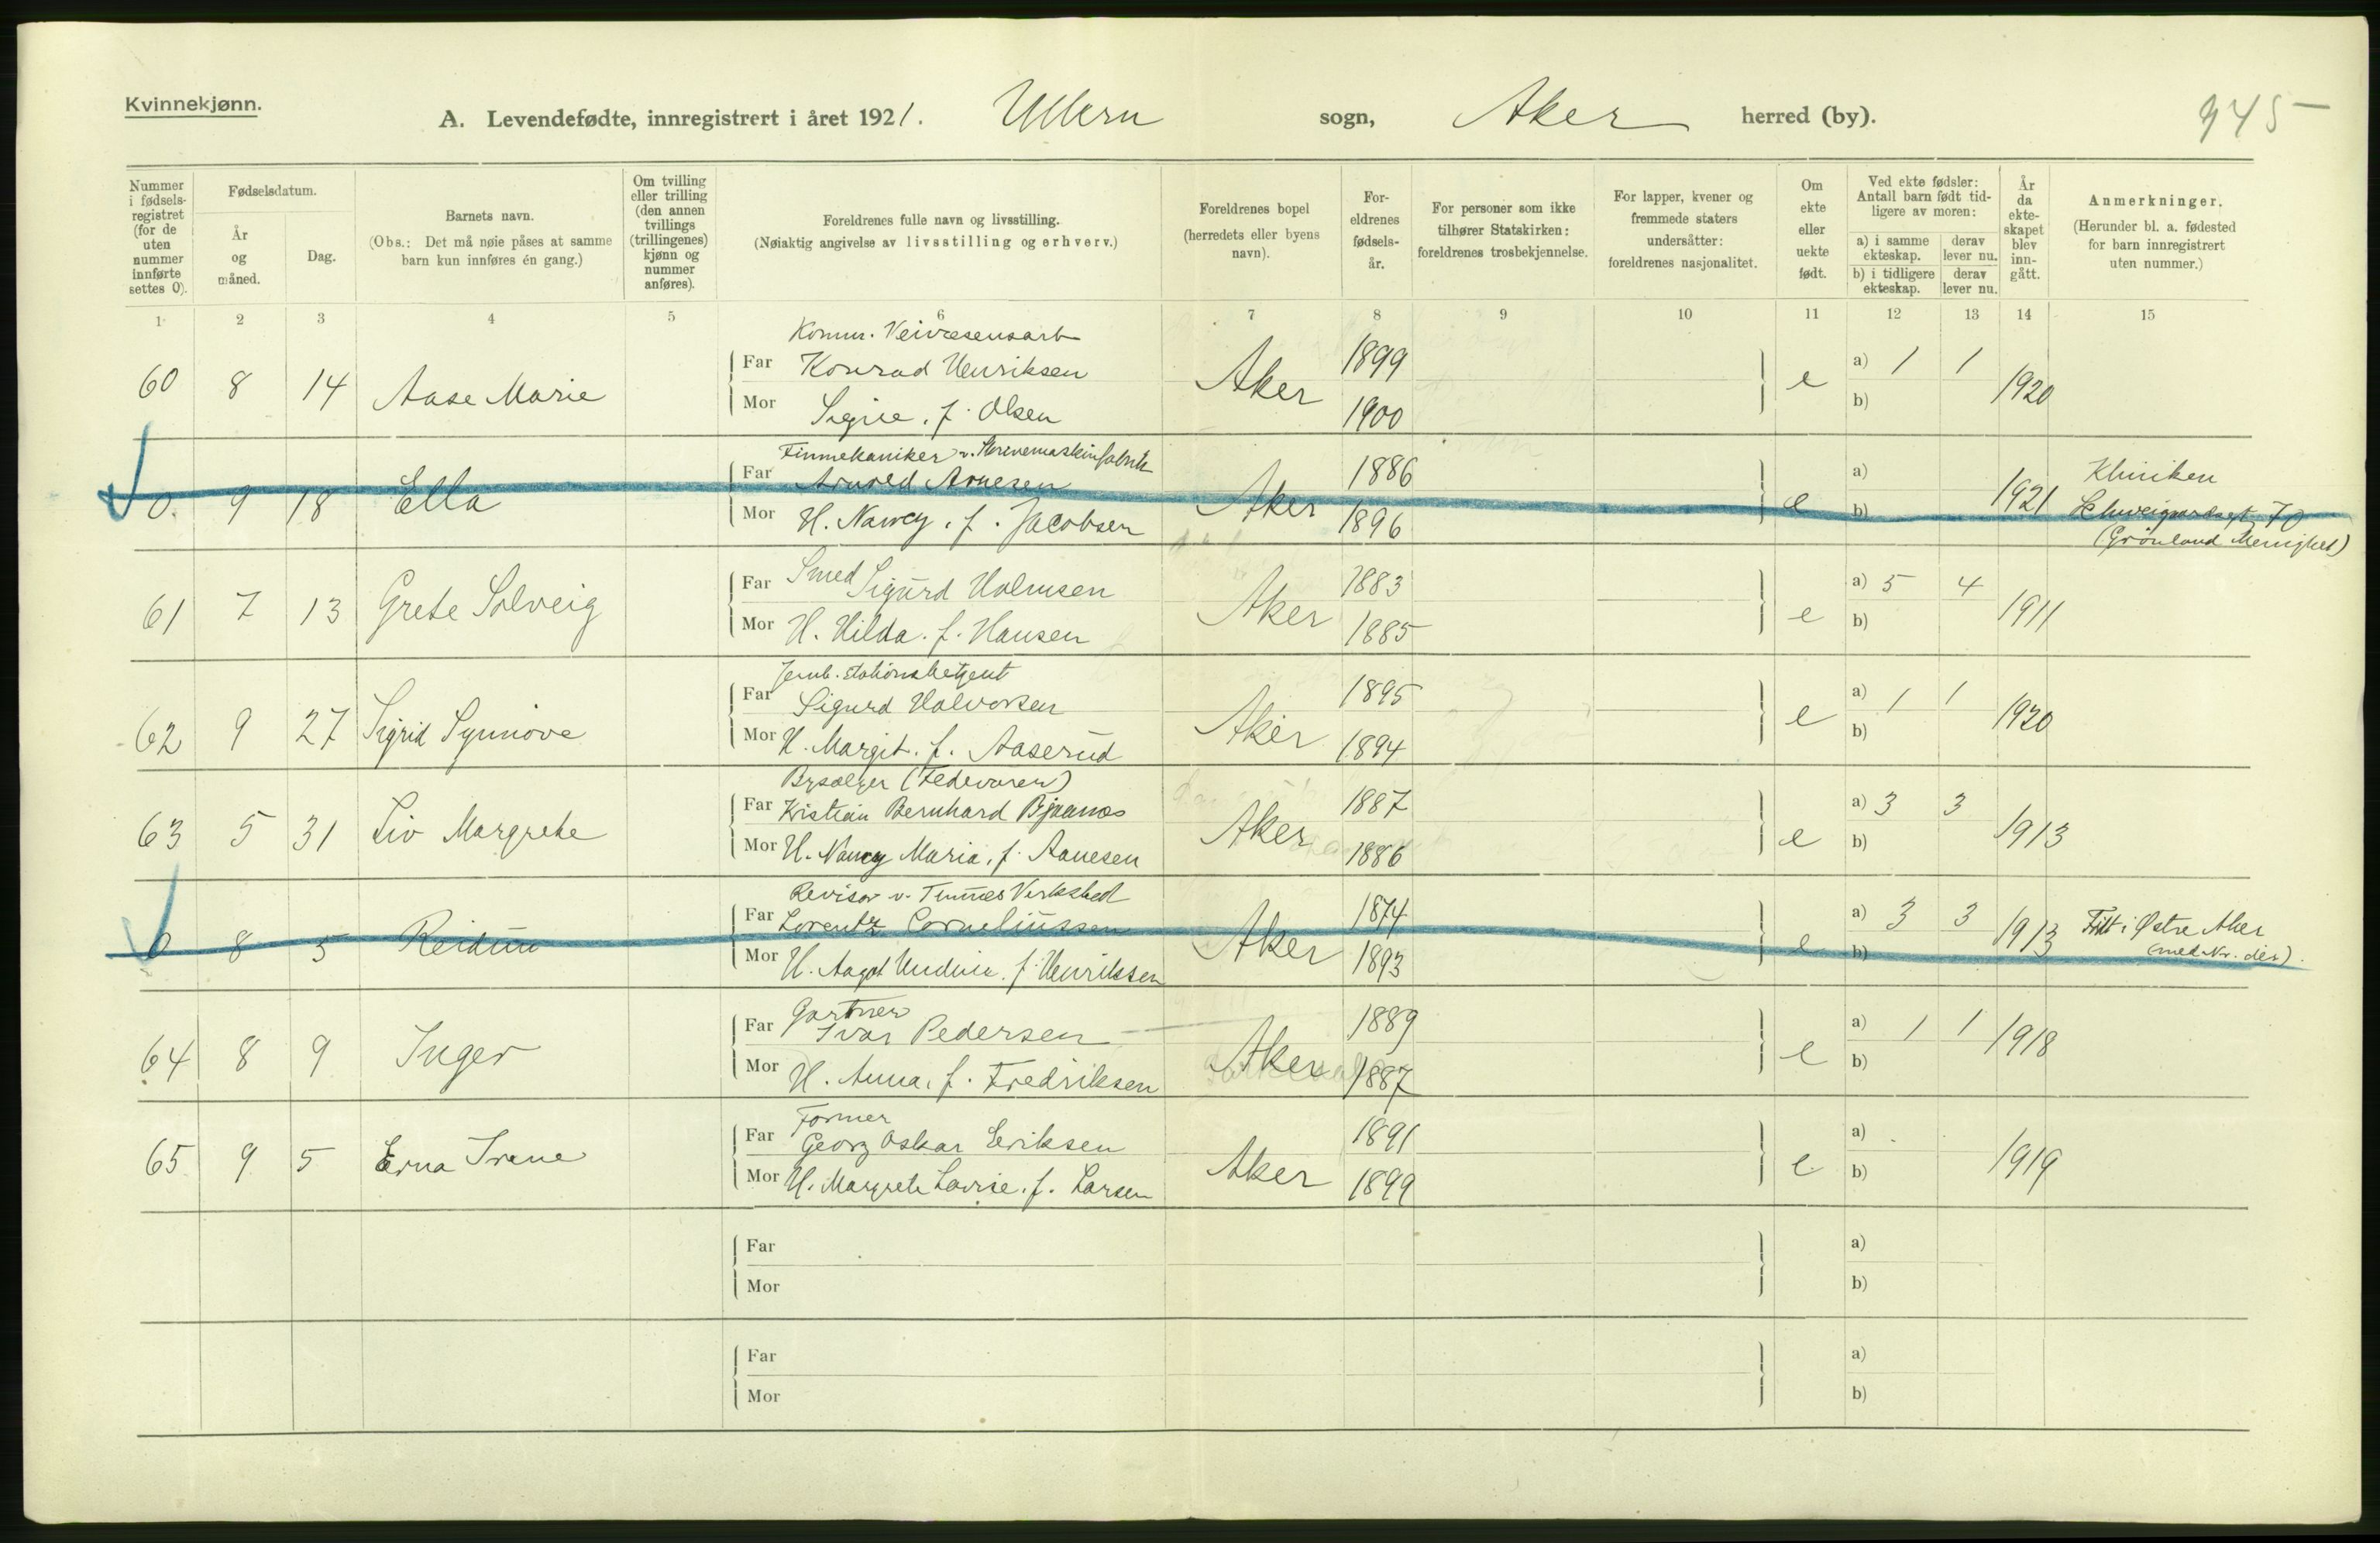 Kvinnekjønn.
A. Levendefødte, innregistrert i året 1921. Ullern sogn, Aker herred (by).
945
Nummer i fødselsregistret (for de uten nummer innførte settes 0).
Fødselsdatum.
År og måned.
Dag.
Barnets navn.
(Obs.: Det må nøie påses at samme barn kun innføres én gang.)
Om tvilling eller trilling (den annen tvillings (trillingenes) kjønn og nummer anføres).
Foreldrenes fulle navn og livsstilling.
(Nøiaktig angivelse av livsstilling og erhverv.)
Foreldrenes bopel (herredets eller byens navn).
Foreldrenes fødselsår.
For personer som ikke tilhører Statskirken: foreldrenes trosbekjennelse.
For lapper, kvener og fremmede staters undersåtter: foreldrenes nasjonalitet.
Om ekte eller uekte født.
Ved ekte fødsler: Antall barn født tidligere av moren:
a) i samme ekteskap. derav lever nu.
b) i tidligere ekteskap. derav lever nu.
År da ekteskapet blev inngått.
Anmerkninger.
(Herunder bl. a. fødested for barn innregistrert uten nummer.)
1 2 3 4 5 6 7 8 9 10 11 12 13 14 15
Komm. Veivæsensarb
60 8 14 Aase Marie Far Konrad Henriksen Aker 1899 e a) 1 1 1920
Mor Signe. f. Olsen 1900 b)
Finmekaniker v. Skrivemaskinfabrik
0. 9 18 Ella Far Arnold Arnesen Aker 1886 e a) 1921 Kliniken
Mor H. Nancy. f. Jacobsen 1896 b) Schweigaardsgt 70
(Grønland Menighet)
61 7 13 Grete Solveig Far Smed Sigurd Holmsen Aker 1883 e a) 5 4 1911
Mor H. Hilda. f. Hansen 1885 b)
Jernb. stationsbetjent
62 9 27 Sigrid Synnøve Far Sigurd Halvorsen Aker 1895 e a) 1 1 1920
Mor H. Margit. f. Aaserud 1894 b)
(Fedevarer)
63 5 31 Liv Margrete Far Kristian Bernhard Aker 1887 e a) 3 3 1913
Mor H. Nancy Maria, f. Aanesen 1886 b)
Revisor v. Verksted
0 8 5 Reidun Far Lorentz Corneliussen Aker 1874 e a) 3 3 1913 Født i Østre Aker
Mor H. Aagot f. Henriksen 1893 b) (med Nr. der).
Gartner
64 8 9 Inger Far Ivar Pedersen Aker 1889 e a) 1 1 1918
Mor H. Anna, f. Fredriksen 1887 b)
Former
65 9 5 Erna Irene Far Georg Oskar Eriksen Aker 1891 e a) 1919
Mor H. Margrete Lovise. f. Larsen 1899 b)
Far a)
Mor b)
Far a)
Mor b)